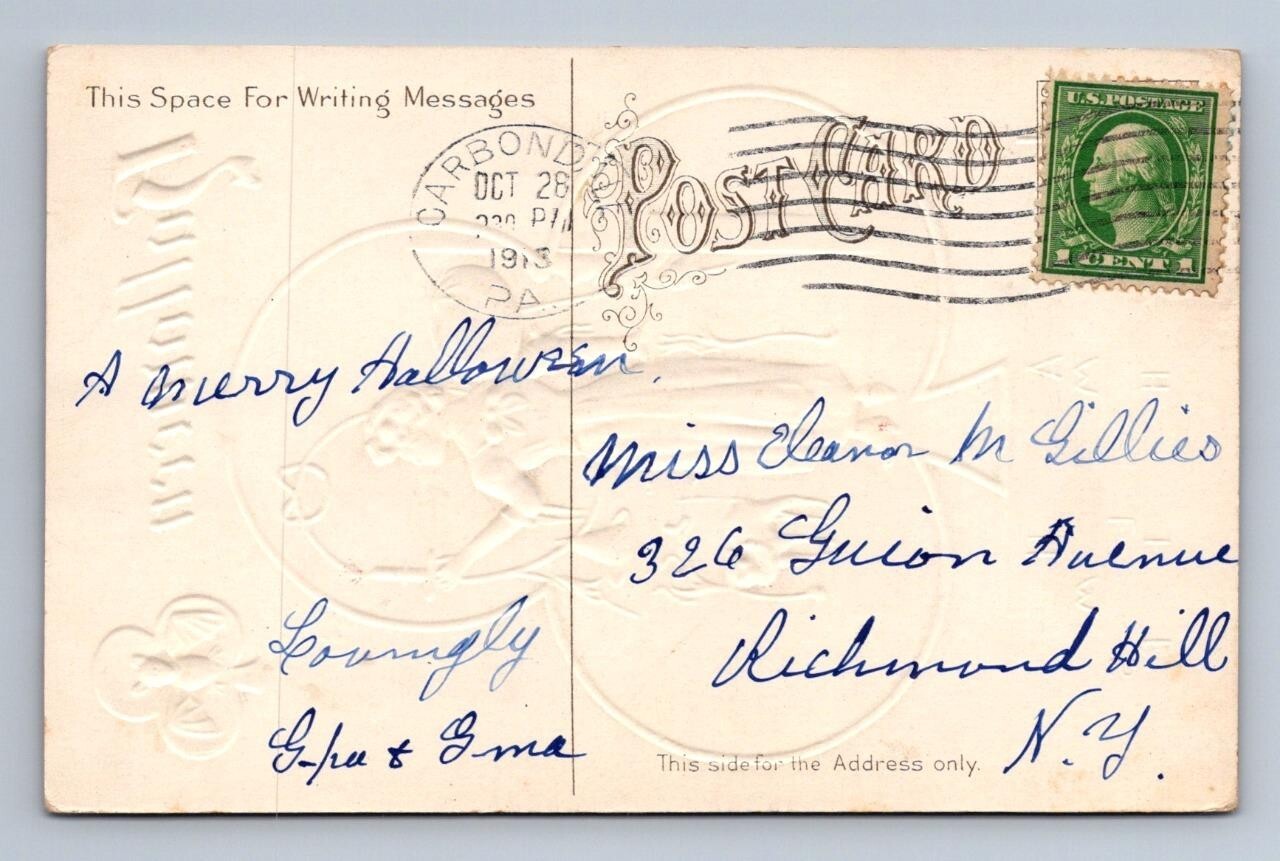 This Space For Writing Messages
CARBONDALE
OCT 28
230 PM
1913
PA.
POST CARD
U.S. POSTAGE
1 CENT 1
Halloween
A Merry Halloween.
Miss Eleanor M Gillies
326 Guion Avenue
Richmond Hill
N.Y.
Lovingly
G-pa & Gma
This side for the Address only.